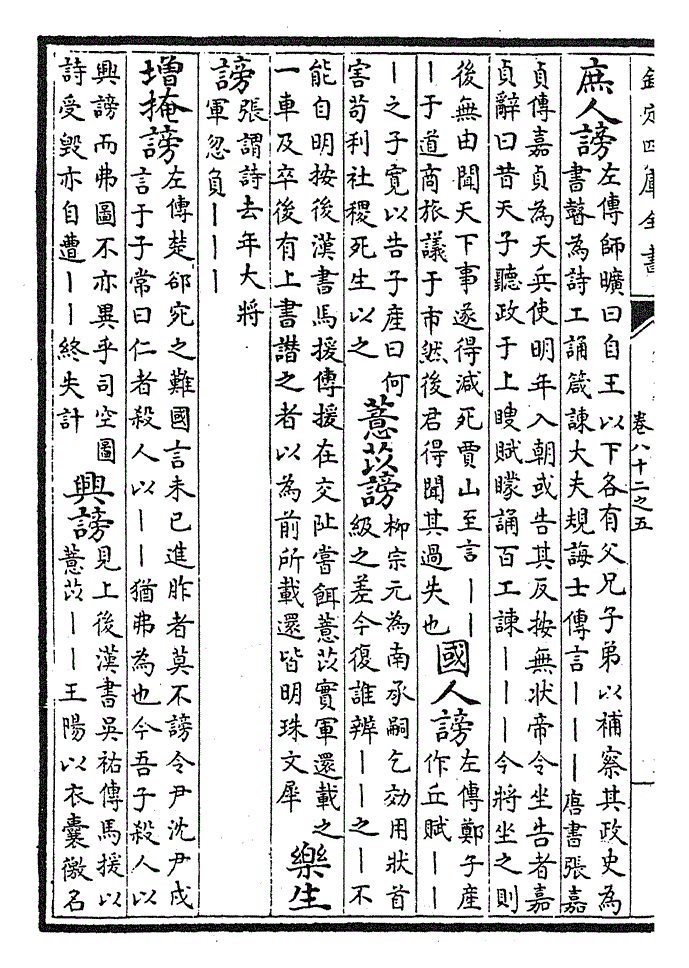 欽定四庫全書
卷八十二之五
庶人謗
左傳師曠曰自王以下各有父兄子弟以補察其政史為
書瞽為詩工誦箴諫大夫規誨士傳言｜｜｜唐書張嘉
貞傳嘉貞為天兵使明年入朝或告其反按無状帝令坐告者嘉
貞辭曰昔天子聽政于上瞍賦矇誦百工諫｜｜｜今將坐之則
後無由聞天下事遂得減死賈山至言｜｜
｜于道商旅議于市然後君得聞其過失也
國人謗
左傳鄭子産
作丘賦｜｜
｜之子寛以告子産曰何
害苟利社稷死生以之
薏苡謗
柳宗元為南承嗣乞効用狀首
級之差今復誰辨｜｜之｜不
能自明按後漢書馬援傳援在交趾嘗餌薏苡實軍還載之
一車及卒後有上書譖之者以為前所載還皆明珠文犀
樂生
謗
張謂詩去年大將
軍忽負｜｜｜
増掩謗
左傳楚郤宛之難國言未已進胙者莫不謗令尹沈尹戌
言于子常曰仁者殺人以｜｜猶弗為也今吾子殺人以
興謗而弗圖不亦異乎司空圖
詩受毀亦自遭｜｜終失計
興謗
見上後漢書吳祐傳馬援以
薏苡｜｜王陽以衣囊徼名